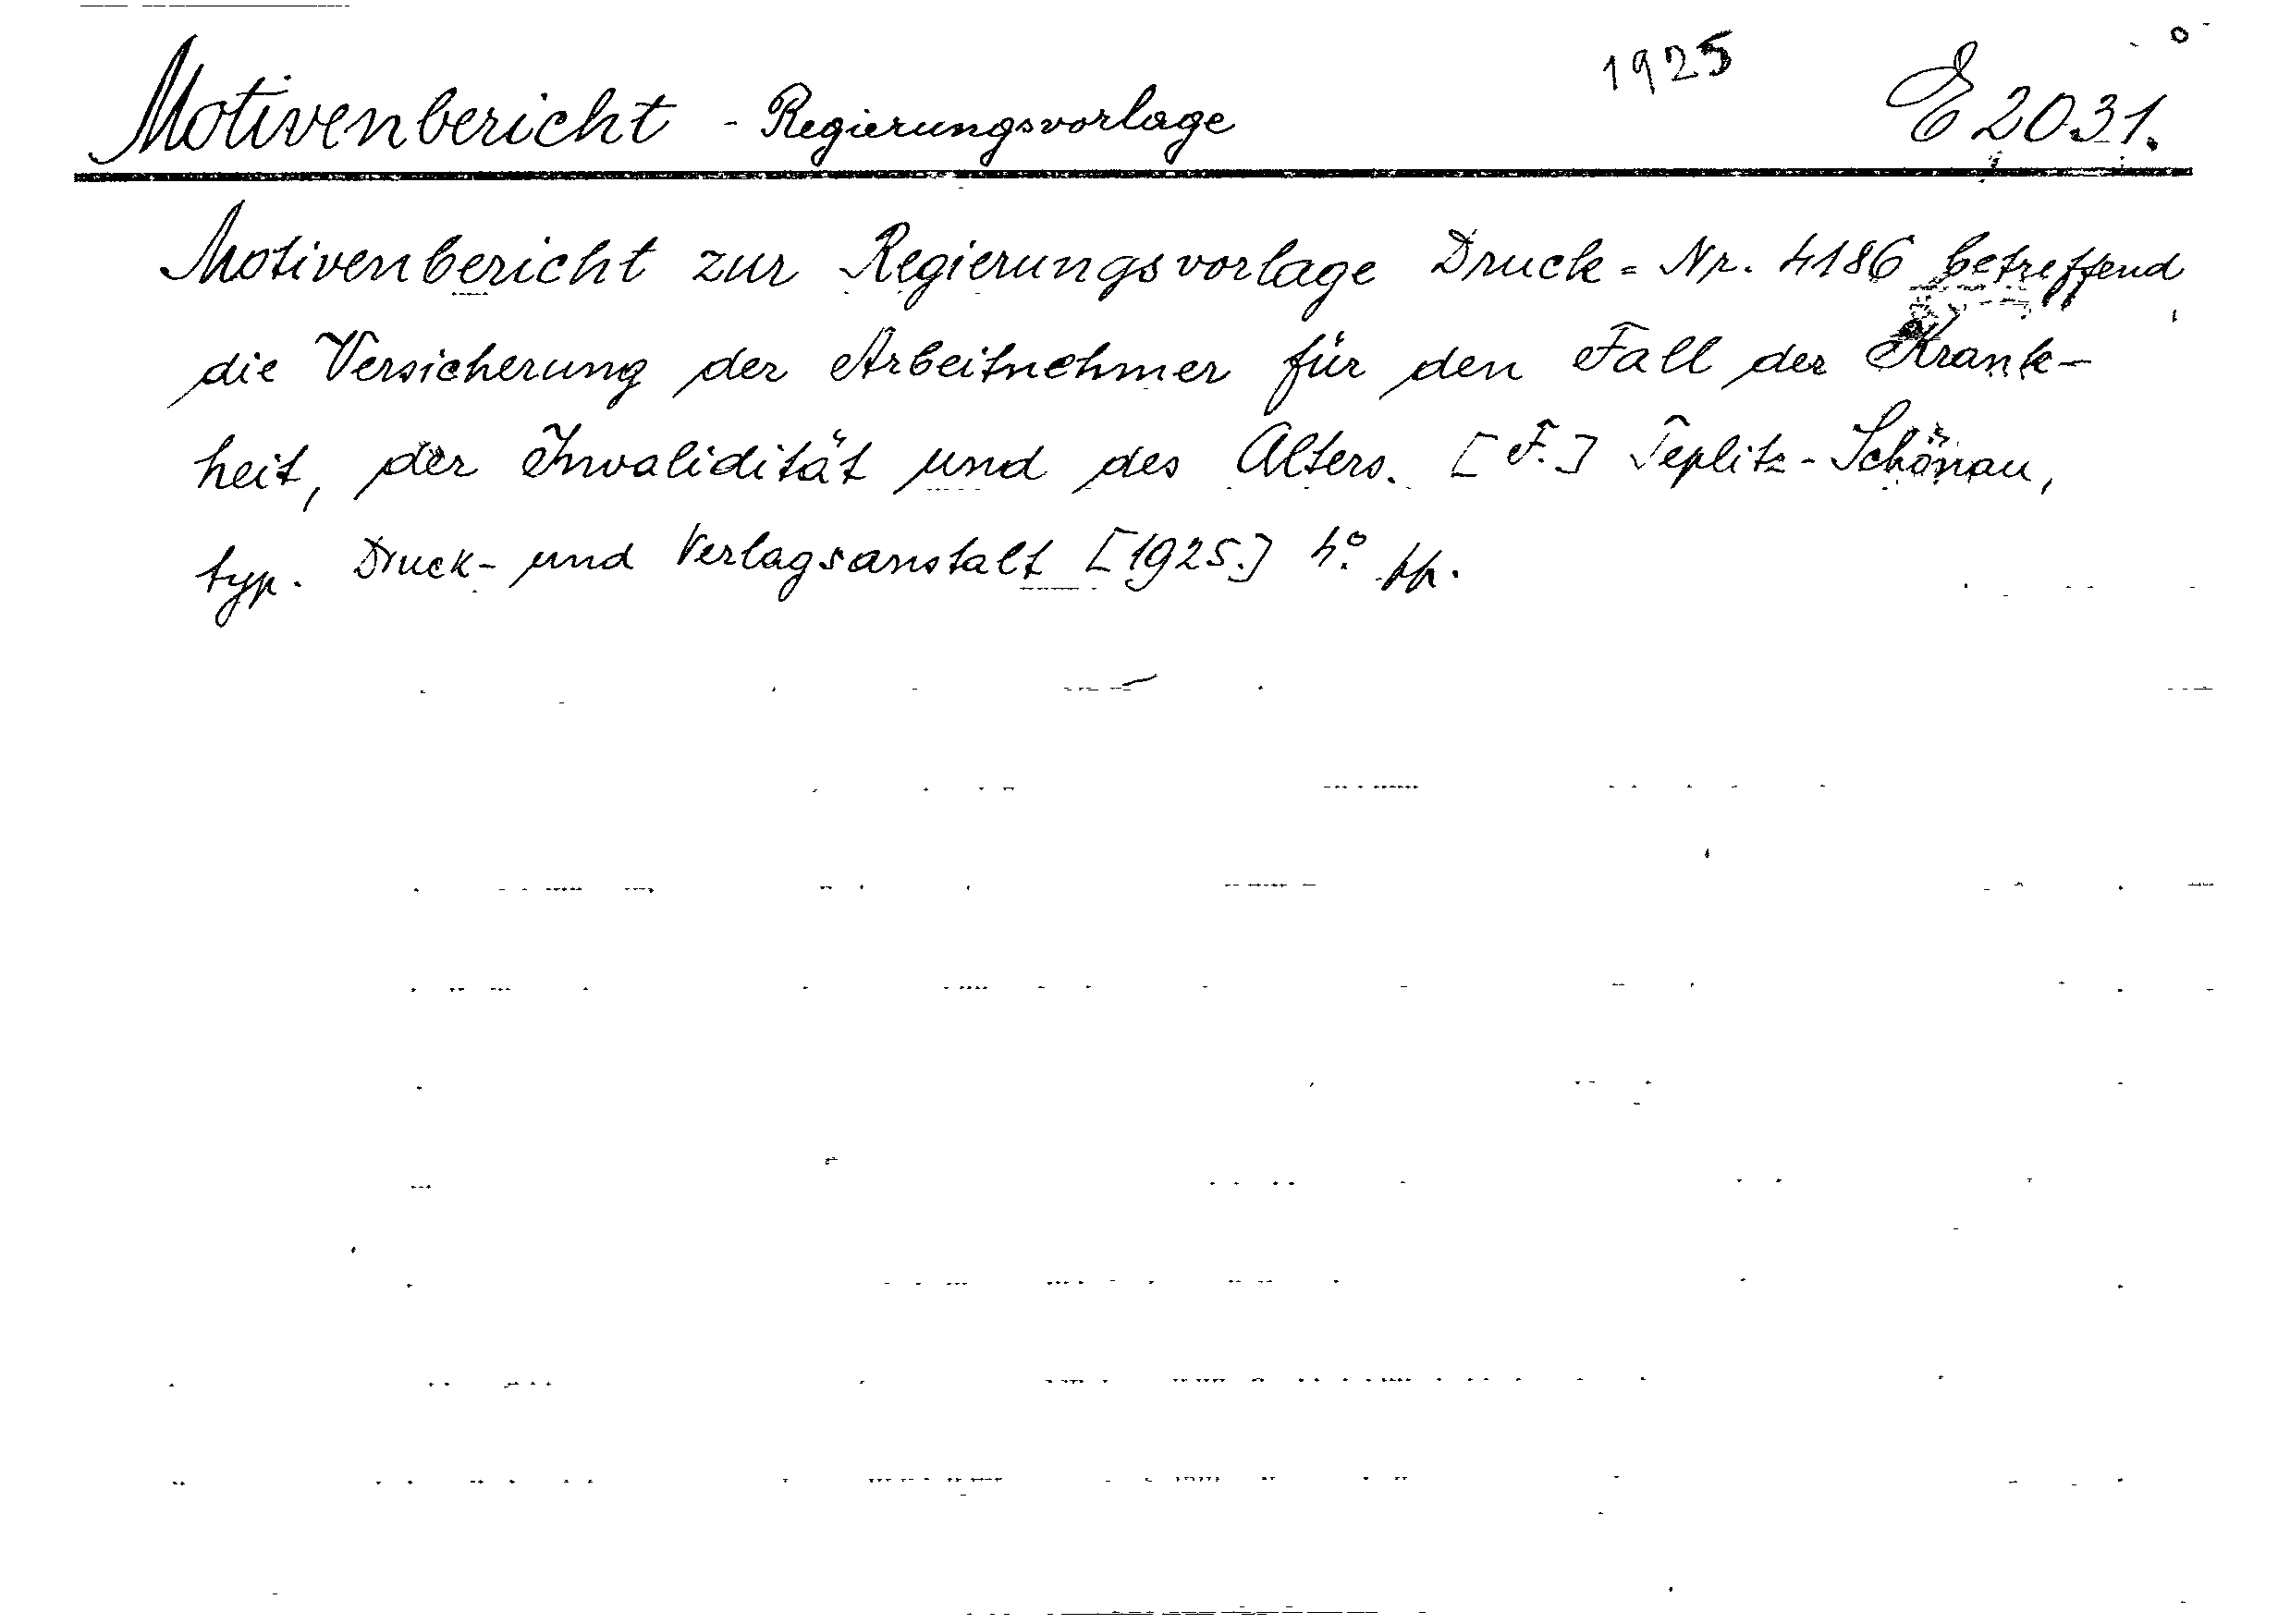 1925
Motivenbericht - Regierungsvorlage E 2031.
Motivenbericht zur Regierungsvorlage Druck=Nr. 4186 betreffend
die Versicherung der Arbeitnehmer für den Fall der Krank-
heit, der Invalidität und des Alters. [F.] Teplitz-Schönau,
typ. Druck- und Verlagsanstalt [1925.] 4°